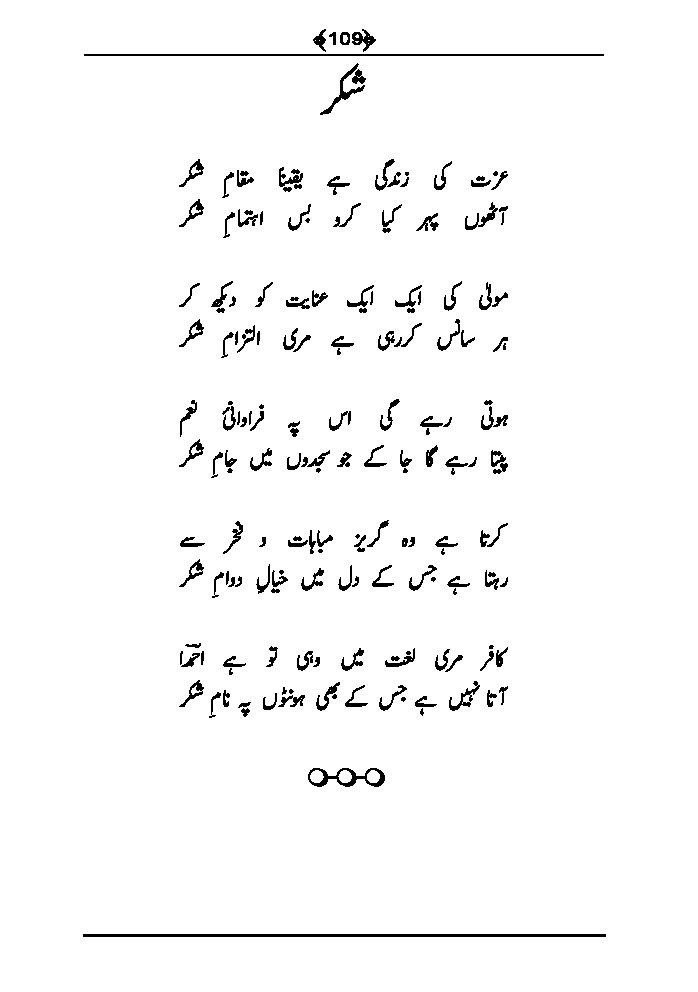 109
شکر
عزت کی زندگی ہے یقیناً مقامِ شکر
آٹھوں پہر کیا کرو بس اہتمامِ شکر
مولیٰ کی ایک ایک عنایت کو دیکھ کر
ہر سانس کررہی ہے مری التزامِ شکر
ہوتی رہے گی اس پہ فراوانیٔ نعم
پیتا رہے گا جا کے جو سجدوں میں جامِ شکر
کرتا ہے وہ گریز مباہات و فخر سے
رہتا ہے جس کے دل میں خیالِ دوامِ شکر
کافر مری لغت میں وہی تو ہے احمدؔا
آتا نہیں ہے جس کے بھی ہونٹوں پہ نامِ شکر